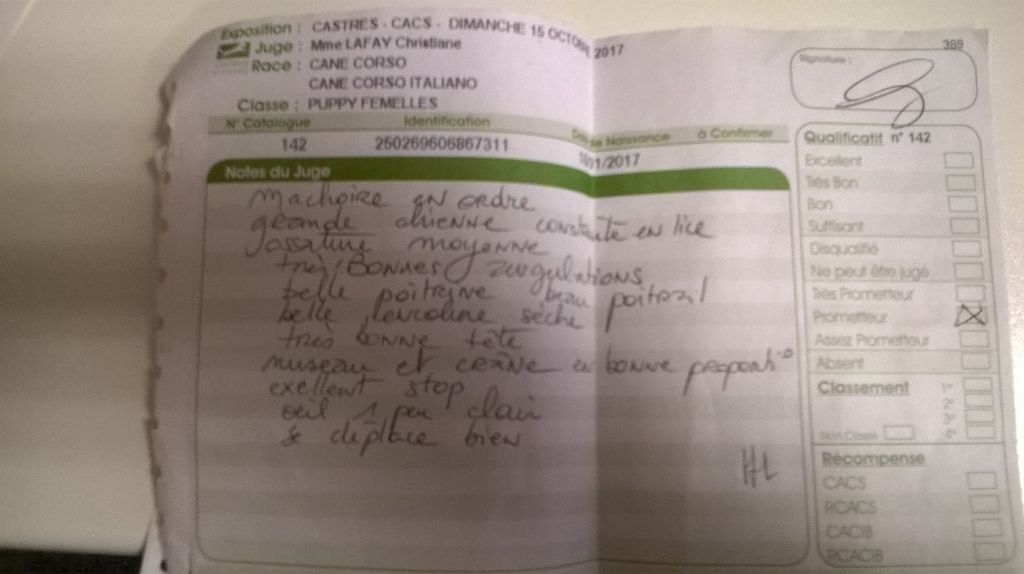 Exposition : CASTRES - CACS - DIMANCHE 15 OCTOBRE 2017
Juge : Mme LAFAY Christiane
Race : CANE CORSO
CANE CORSO ITALIANO
Classe : PUPPY FEMELLES
389
Signature :
N° Catalogue Identification Date de Naissance à Confirmer
142 250269606867311 /01/2017
Notes du Juge
Machoire en ordre
grande chienne construite en lice
ossature moyenne
très Bonnes angulations
belle poitrine beau poitrail
belle encolure sèche
très bonne tête
museau et crâne en bonne proport°
exellent stop
oeil 1 peu clair
se déplace bien
HL
Qualificatif n° 142
Excellent
Très Bon
Bon
Suffisant
Disqualifié
Ne peut être jugé
Très Prometteur
Prometteur
Assez Prometteur
Absent
Classement
Non Classé
Récompense
CACS
RCACS
CACIB
RCACIB